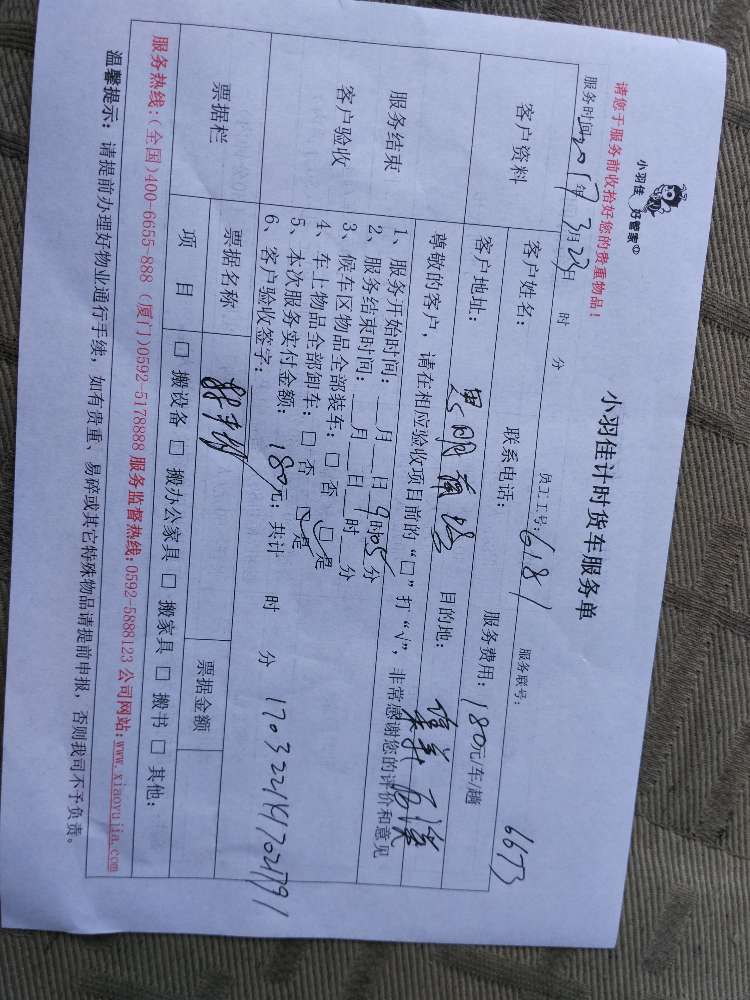 小羽佳 好管家
请您于服务前收拾好您的贵重物品！
小羽佳计时货车服务单
服务时间：2017年3月23日 时 分 员工工号：6181 服务联号： 6673
客户资料 客户姓名： 联系电话： 服务费用：180元/车/趟
客户地址：思明 目的地：
尊敬的客户，请在相应验收项目前的“□”打“√”，非常感谢您的评价和意见
服务结束
客户验收
1、服务开始时间：__月__日9时05分
2、服务结束时间：__月__日__时__分
3、候车区物品全部装车：□ 否 ☑ 是
4、车上物品全部卸车：□ 否 ☑ 是
5、本次服务实付金额：180元；共计 时 分
6、客户验收签字：
票据栏 票据名称 票据金额
项 目 □ 搬设备 □ 搬办公家具 □ 搬家具 □ 搬书 □ 其他：
服务热线：(全国)400-6655-888 (厦门)0592-5178888 服务监督热线:0592-5888123 公司网站:www.xiaoyujia.com
温馨提示：请提前办理好物业通行手续，如有贵重、易碎或其它特殊物品请提前申报，否则我司不予负责。